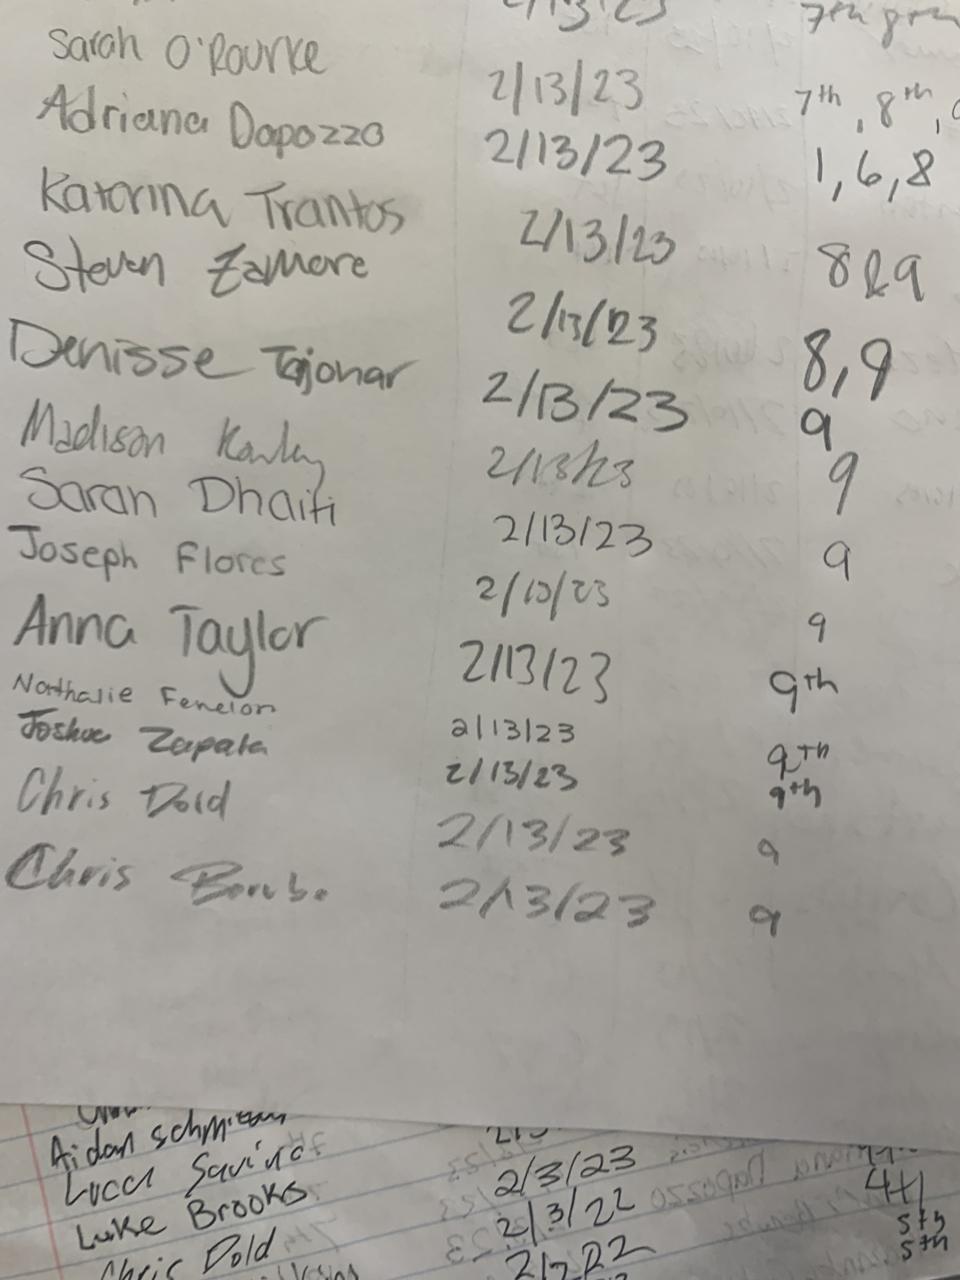 2/13/23 7th 8th
Sarah O'Rourke 2/13/23 7th, 8th,
Adriana Dapozzo 2/13/23 1, 6, 8
Katerina Trantos 2/13/23 8&9
Steven Zamore 2/13/23 8, 9
Denisse Tajonar 2/13/23 9
Madison 2/13/23 9
Sarah Dhaiti 2/13/23 9
Joseph Flores 2/10/23 9
Anna Taylor 2/13/23 9th
Nathalie Fenelon 2/13/23 9th
Joshua Zapata 2/13/23 9th
Chris Dold 2/13/23 9
Chris 2/13/23 9
Aidan
Lucca 2/3/23 4th
Luke Brooks 2/3/22 5th
Chris Dold 5th